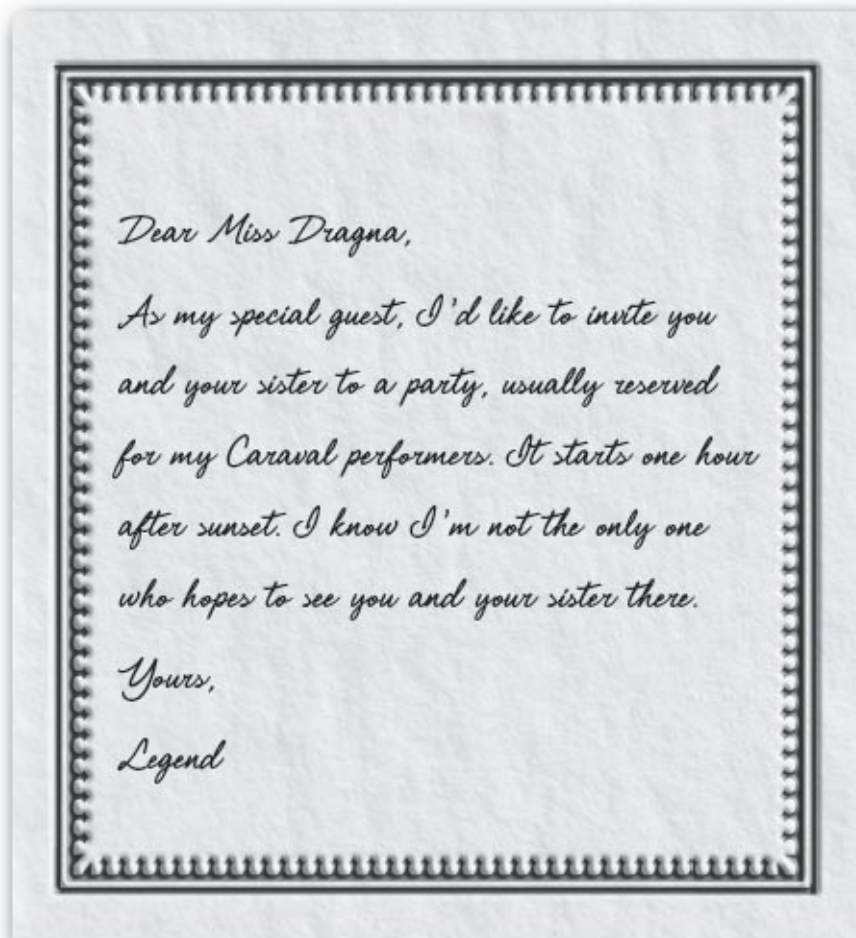 Dear Miss Dragna,
As my special guest, I'd like to invite you
and your sister to a party, usually reserved
for my Caraval performers. It starts one hour
after sunset. I know I'm not the only one
who hopes to see you and your sister there.
Yours,
Legend